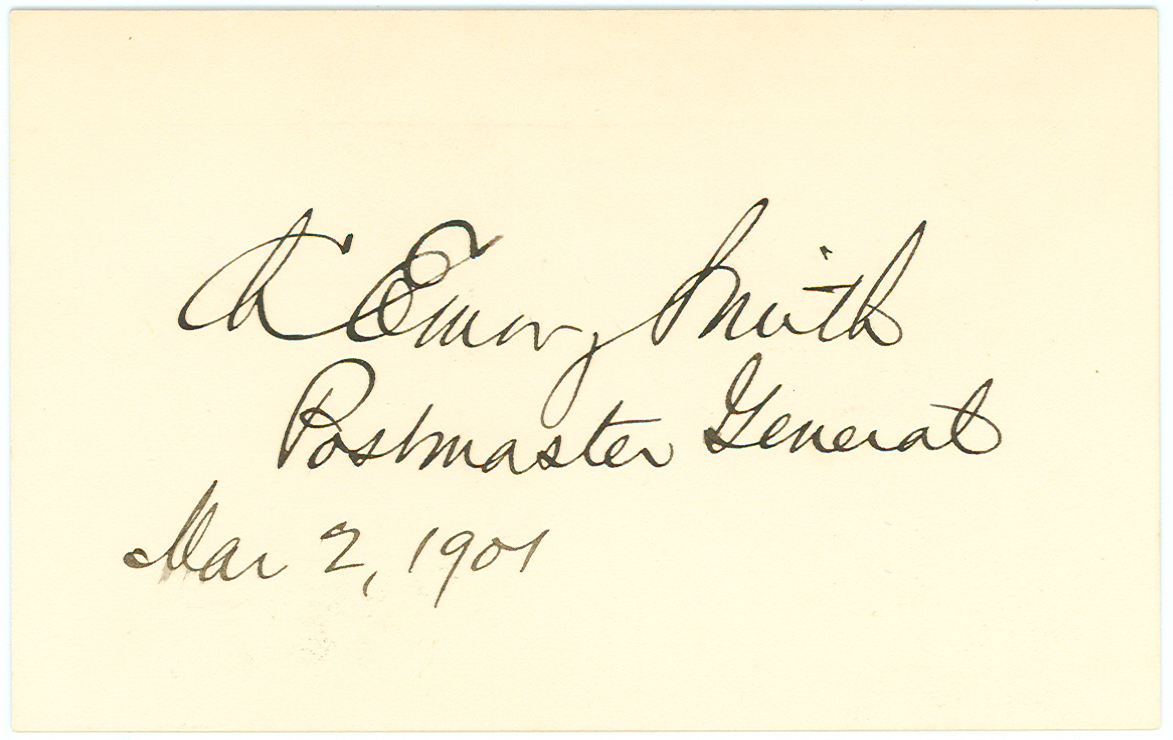 Ch Emory Smith
Postmaster General
Mar 2, 1901